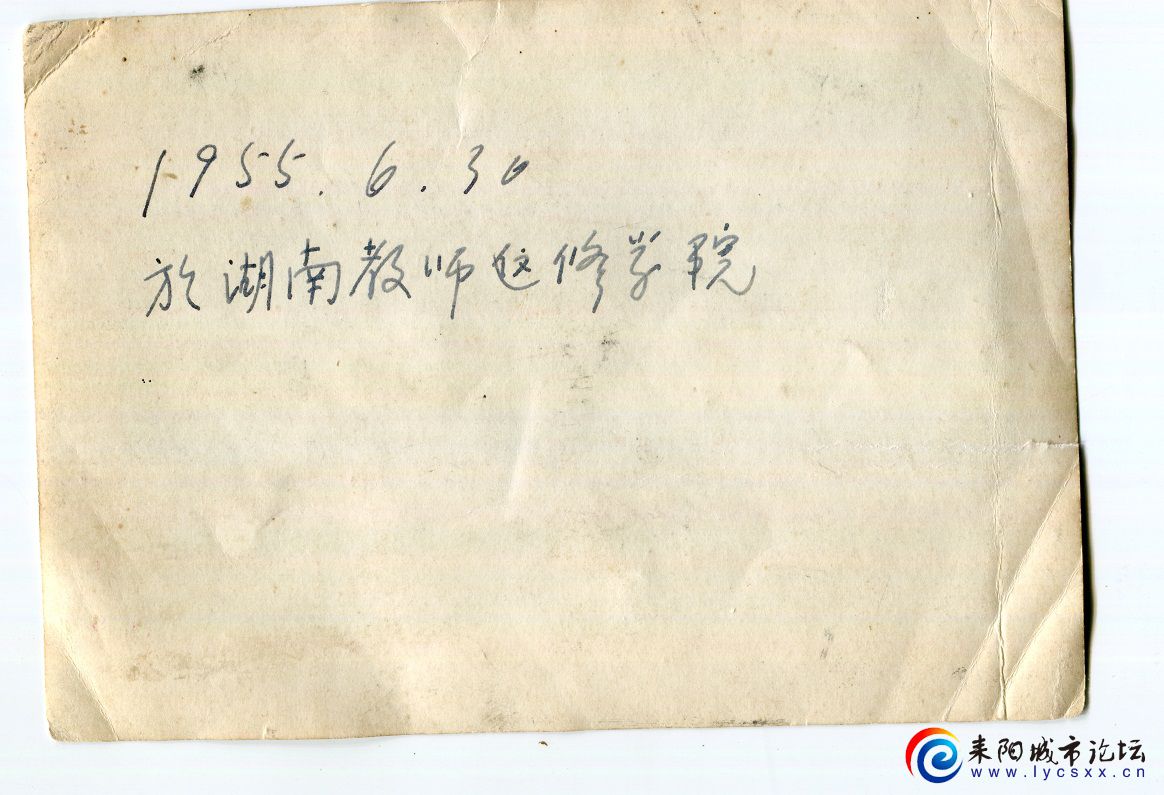 1955.6.30
於湖南教师进修学院
耒阳城市论坛
www.lycsxx.cn